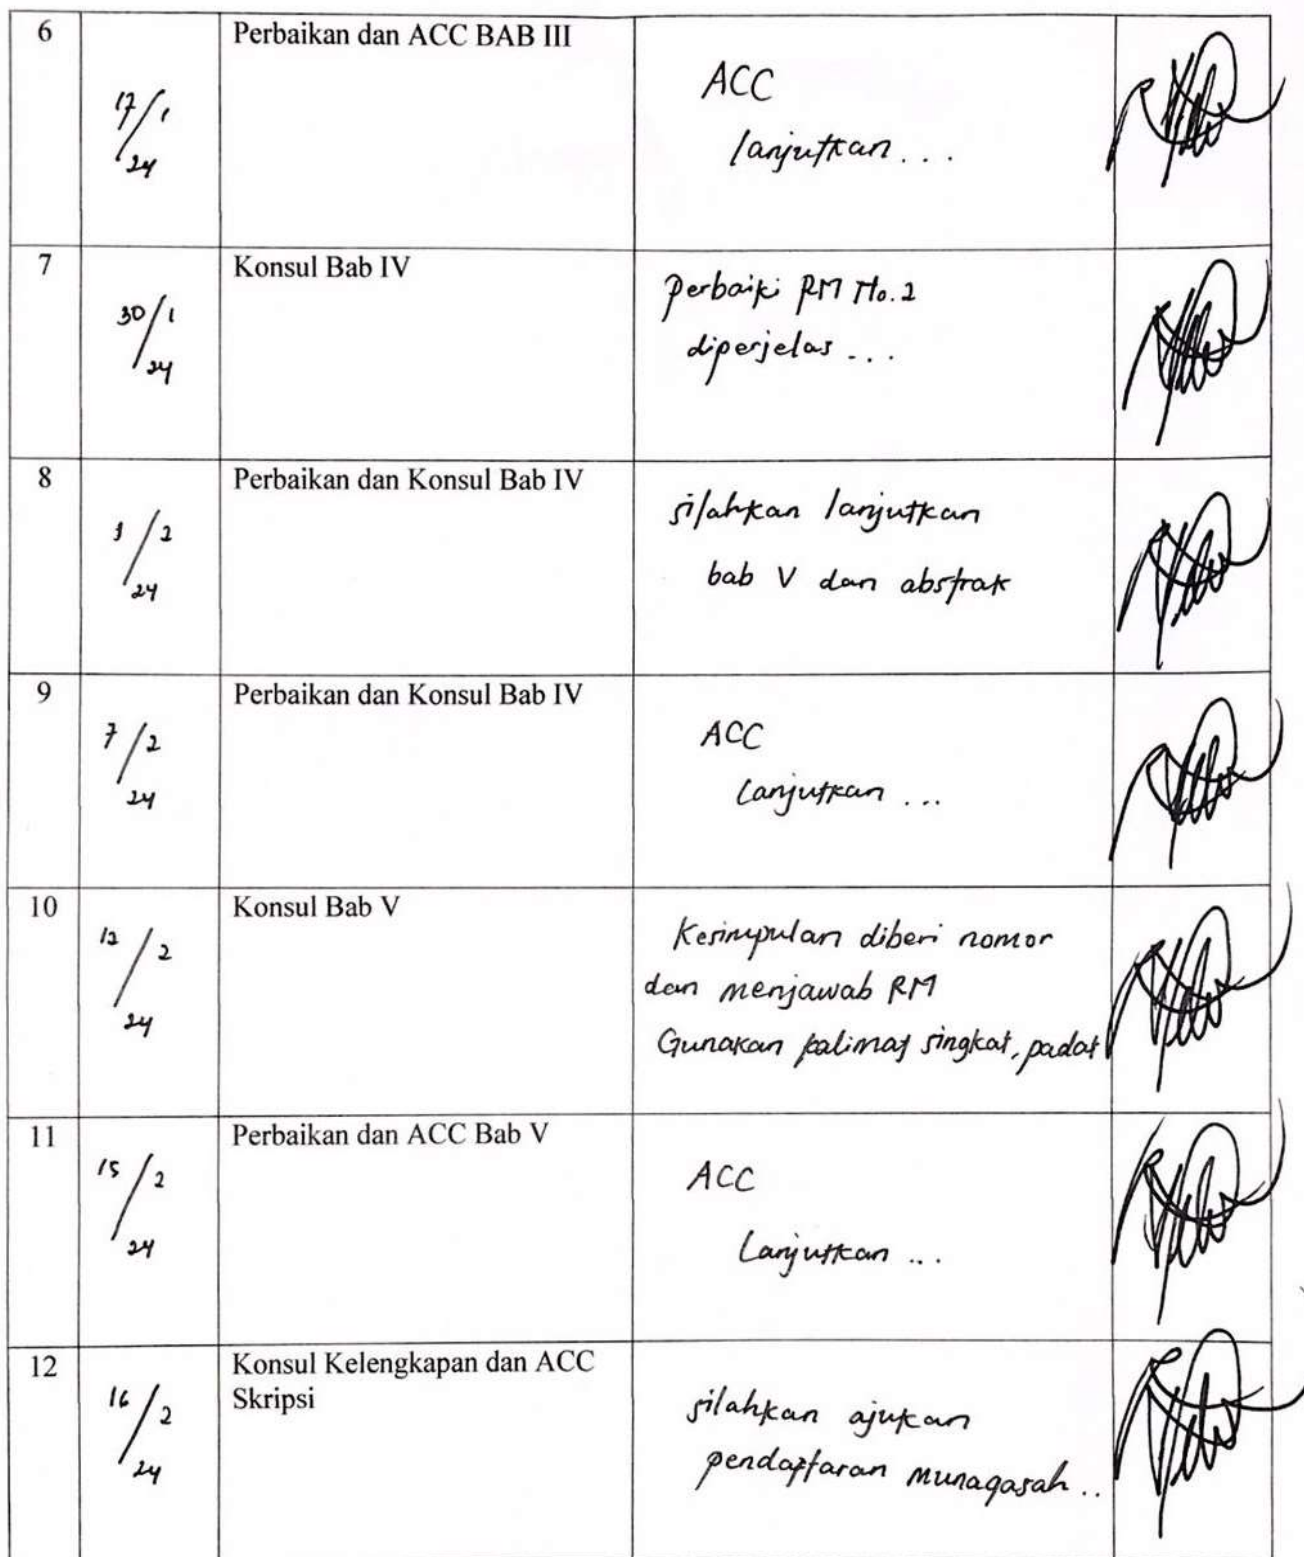 6
Perbaikan dan ACC BAB III
17/1
24
ACC
lanjutkan...
7
Konsul Bab IV
30/1
24
Perbaiki RM No.2
diperjelas...
8
Perbaikan dan Konsul Bab IV
/2
24
silahkan lanjutkan
bab V dan abstrak
9
Perbaikan dan Konsul Bab IV
7/2
24
ACC
Lanjutkan...
10
Konsul Bab V
12/2
24
Kesimpulan diberi nomor
dan menjawab RM
Gunakan kalimat singkat, padat
11
Perbaikan dan ACC Bab V
15/2
24
ACC
Lanjutkan...
12
Konsul Kelengkapan dan ACC
Skripsi
16/2
24
silahkan ajukan
pendaftaran munaqasah..